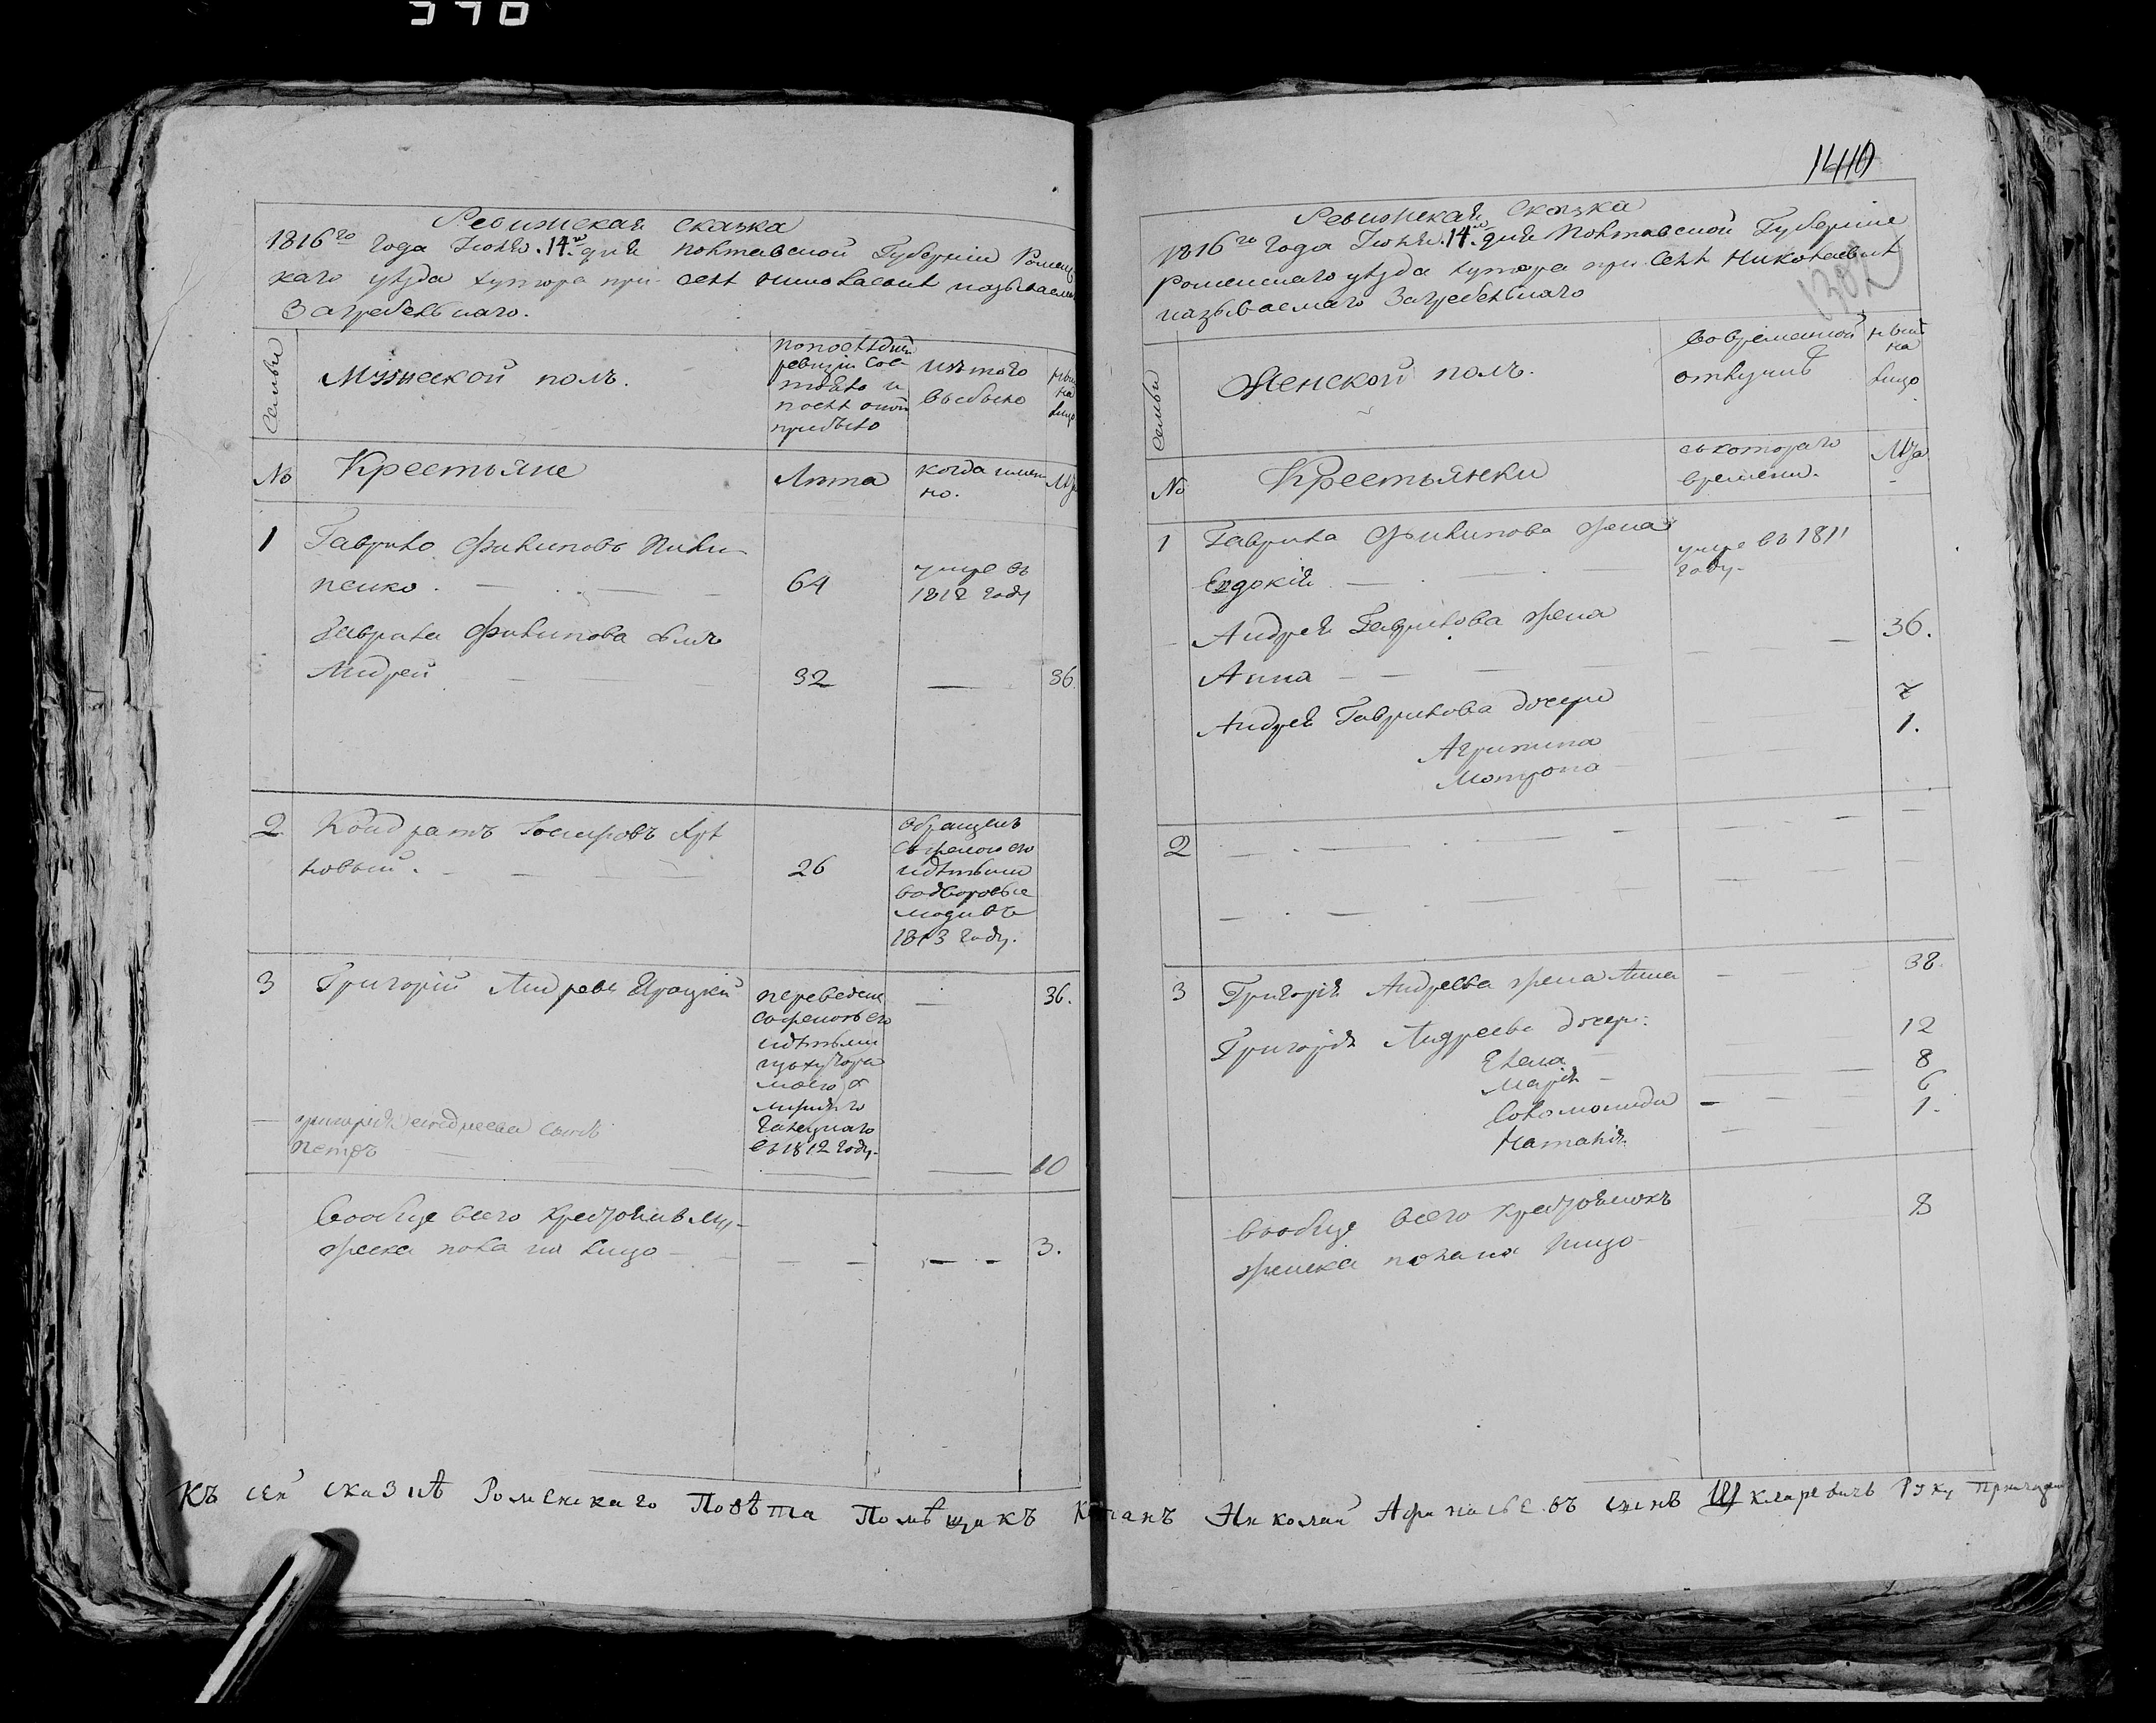 370
Ревижская сказка
1816го года Июня 14го дня Полтавской Губернии Роменс
каго уезда хутора при селе Николаевке называемаго
Загребельнаго.
Семьи
Мужеской полъ.
попоследней
ревизіи сос-
тояло и
после оной
прибыло
изътого
выбыло
ныне
на
лицо
№
Крестьяне
Лета
когда имен
но.
Лета
1
Гаврило Филиповъ Пили-
пенко
64
умре въ
1812 году
Гаврила Филипова сынъ
Андрей
32
36.
2
Кондратъ
26
обращенъ
съженою его
идетьми
водворовые
люди въ
1813 году.
3
Григорій Андреевъ
36.
переведенъ
соженою его
идетьми
изъхутора
моего
въ1812 году.
Григорія Андреева сынъ
Петръ
10
Вообще всего крестьянъ му-
жеска пола на лицо
3.
1410
1302
Ревижская Сказка
1816го года Июня 14го дня Полтавской Губерніи
Роменскаго уезда хутора при селе Николаевке
называемаго Загребельнаго
Семьи
Женской полъ.
вовременной
отлучке
ныне
на
лицо
№
Крестьянки
съкотораго
времени.
Лета
1
Гаврила Филипова жена
Евдокія
умре въ 1811
году.
Андрея Гаврилова жена
36.
Анна
Андрея Гаврилова дочери
7
Агрипина
1.
Мотрона
2
3
Григорія Андреева жена Анна
38.
Григорія Андреева дочери:
12
Елена
8
Марія
6
Соломонида
1.
Наталія
Вообще всего крестьянокъ
8
женска пола на лицо
Къ сей сказке Роменскаго Повѣта Помѣщикъ Капитанъ Николай Афанасьевъ сынъ Шкляревичъ Руку Приложил